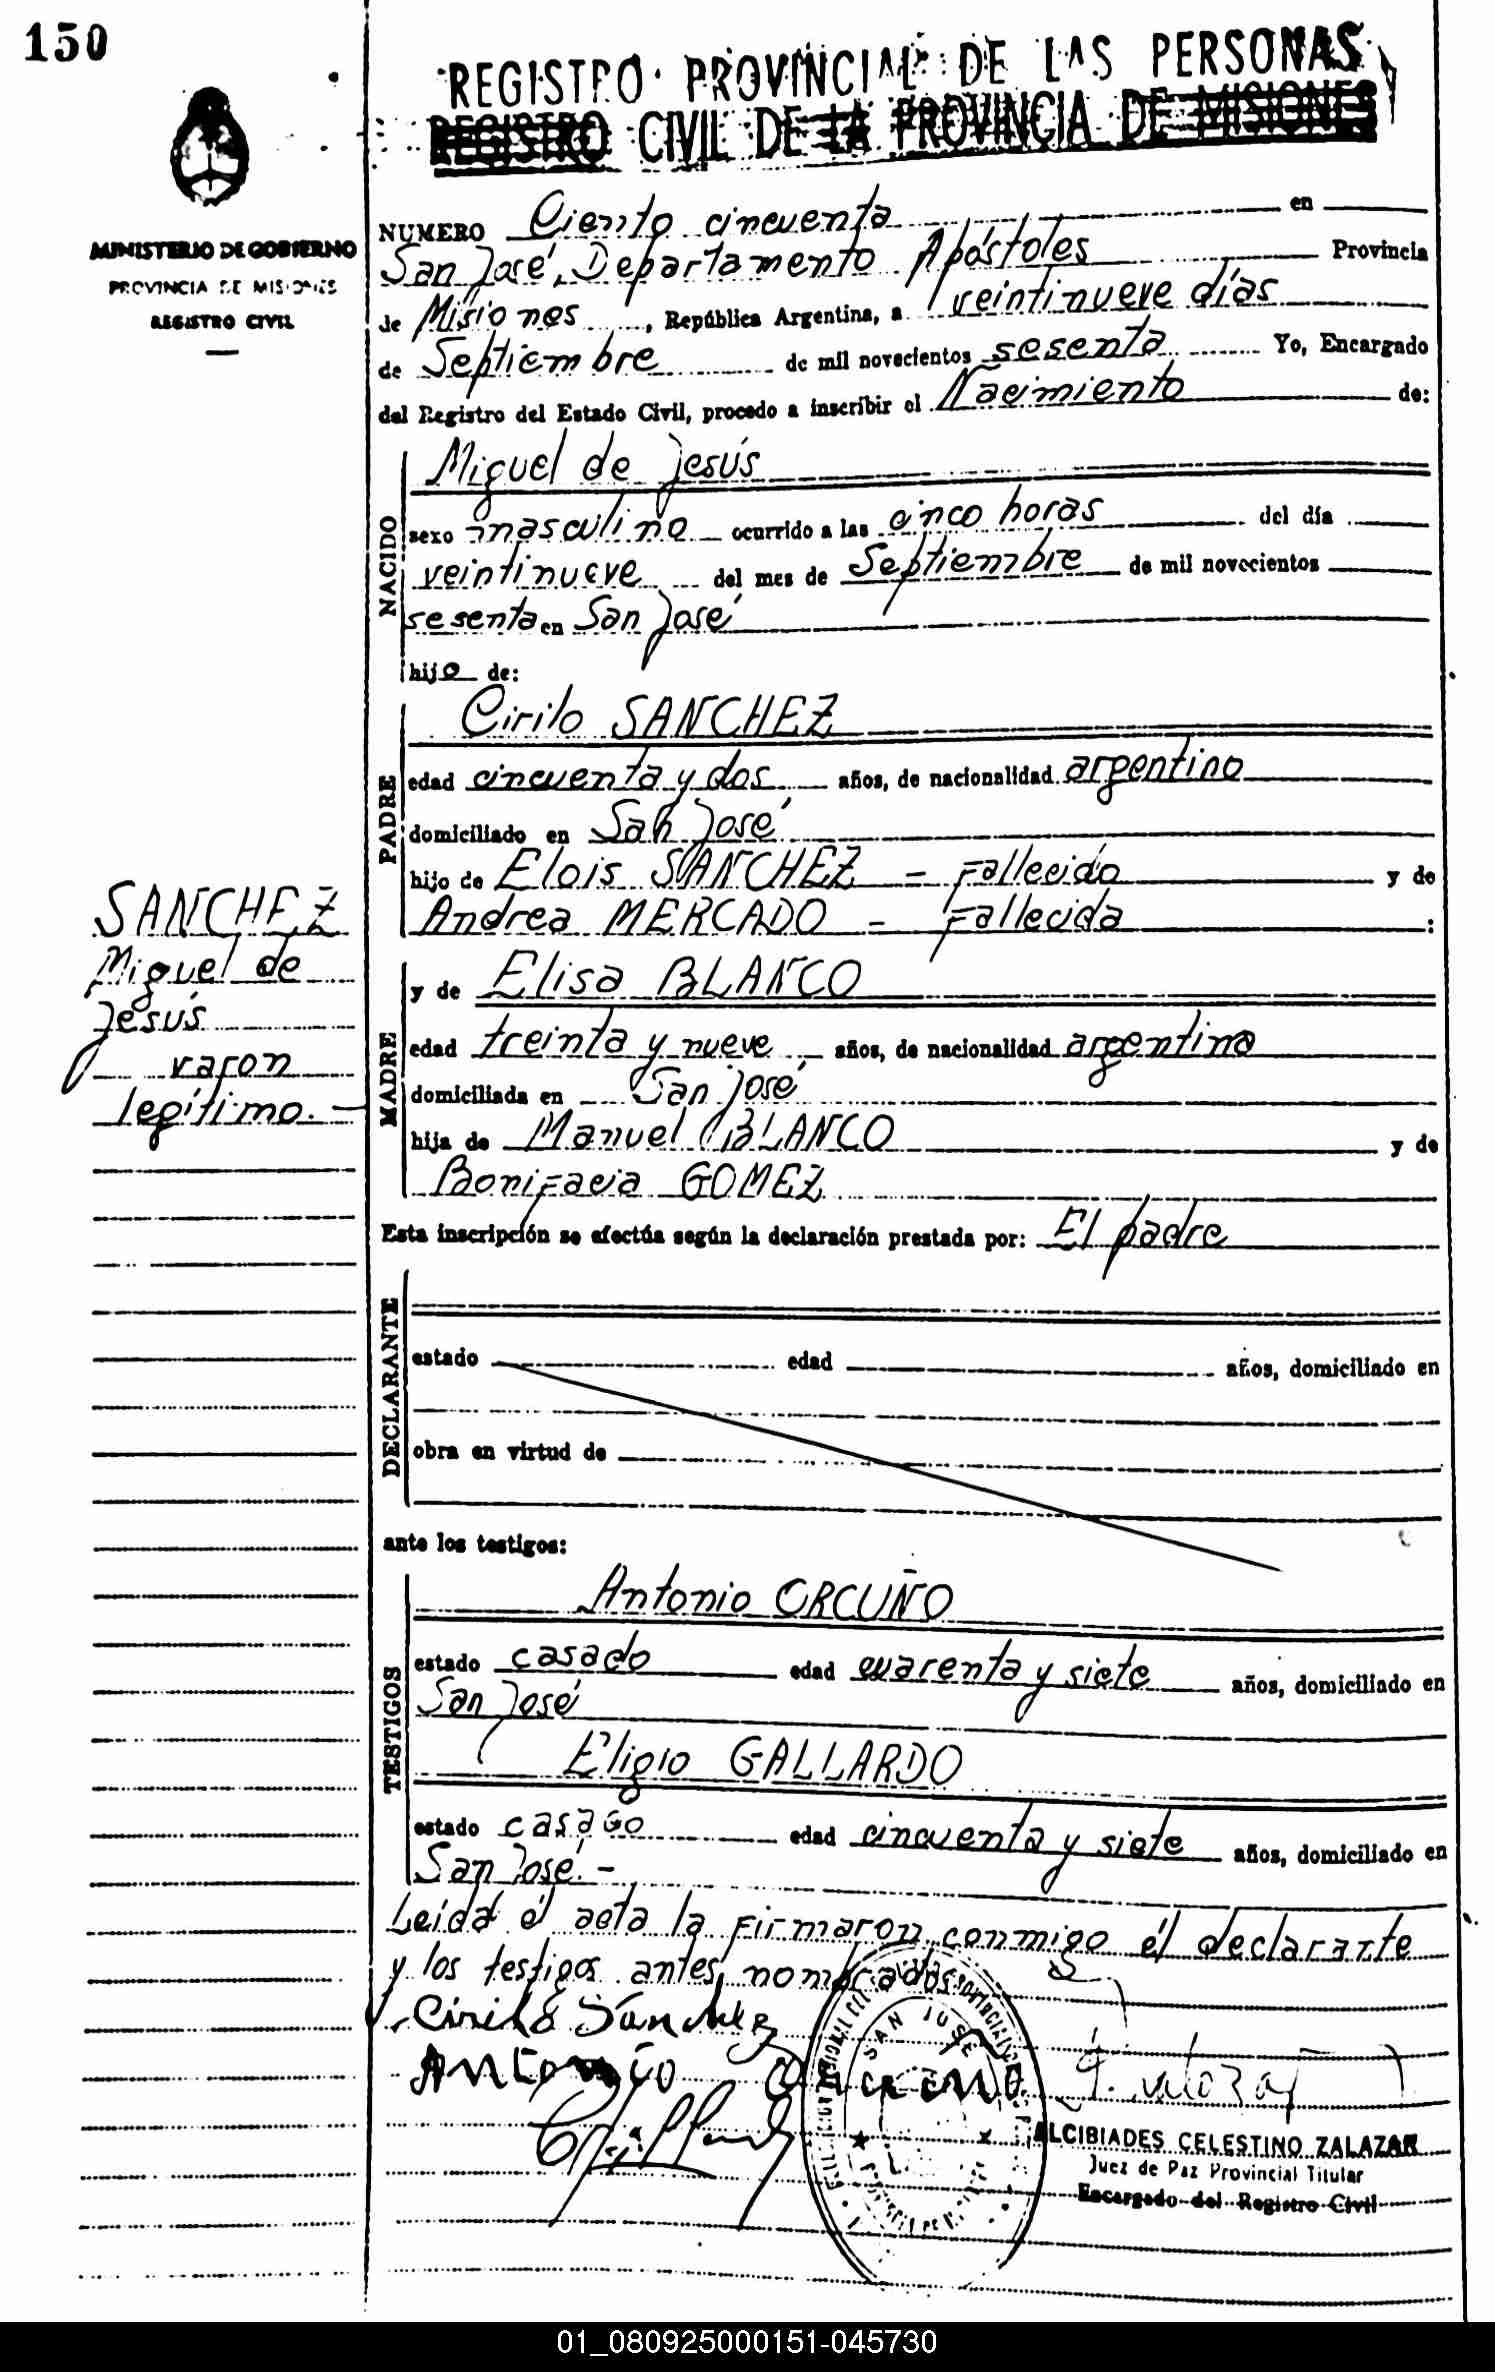 150
REGISTRO PROVINCIAL DE LAS PERSONAS
REGISTRO CIVIL DE LA PROVINCIA DE MISIONES
MINISTERIO DE GOBIERNO
PROVINCIA DE MISIONES
REGISTRO CIVIL
NUMERO Ciento cincuenta en
San José, Departamento Apóstoles Provincia
de Misiones, República Argentina, a veintinueve días
de Septiembre de mil novecientos sesenta Yo, Encargado
del Registro del Estado Civil, procedo a inscribir el Nacimiento de:
NACIDO
Miguel de Jesús
sexo masculino ocurrido a las cinco horas del día
veintinueve del mes de Septiembre de mil novecientos
sesenta en San José
hijo de:
PADRE
Cirilo SANCHEZ
edad cincuenta y dos años, de nacionalidad argentino
domiciliado en San José
hijo de Elois SANCHEZ - Fallecido y de
Andrea MERCADO - Fallecida :
SANCHEZ
Miguel de
Jesús
varon
legítimo. -
MADRE
y de Elisa BLANCO
edad treinta y nueve años, de nacionalidad argentina
domiciliada en San José
hija de Manuel BLANCO y de
Bonifacia GOMEZ
Esta inscripción se efectúa según la declaración prestada por: El padre
DECLARANTE
estado edad años, domiciliado en
obra en virtud de
ante los testigos:
TESTIGOS
Antonio ORCUÑO
estado casado edad cuarenta y siete años, domiciliado en
San José
Eligio GALLARDO
estado casado edad cincuenta y siete años, domiciliado en
San José. -
Leída él acta la firmaron conmigo él declarante
y los testigos antes nombrados
Cirilo Sanchez
Antonio Orcuño
SAN JOSE
ALCIBIADES CELESTINO ZALAZAR
Juez de Paz Provincial Titular
Encargado del Registro Civil
01_080925000151-045730